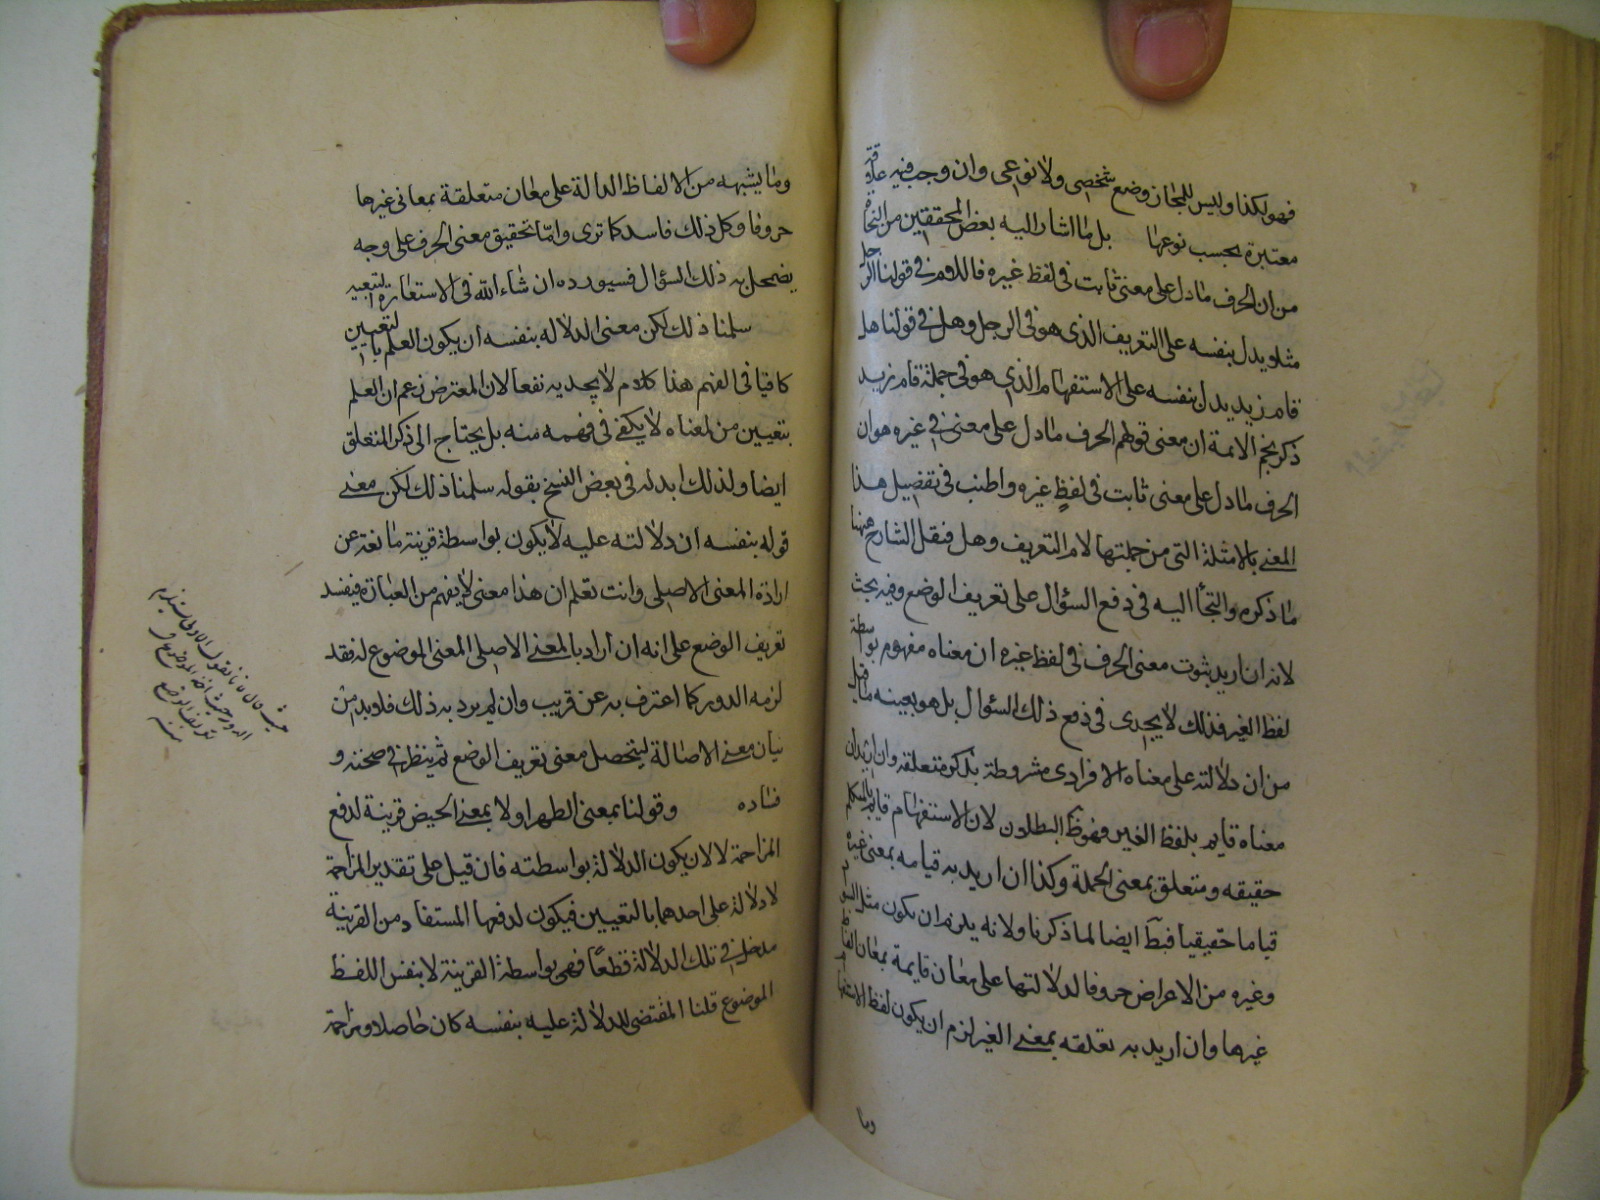 فهو لكذا وليس للمجاز وضع شخصى ولا نوعى وان وجب فيه علاقة
معتبرة بحسب نوعها بل ما اشار اليه بعض المحققين من النحاة
من ان الحرف ما دل على معنى ثابت فى لفظ غيره فاللام فى قولنا الرجل
مثلا يدل بنفسه على التعريف الذى هو فى الرجل وهل فى قولنا هل
قام زيد يدل بنفسه على الاستفهام الذى هو فى جملة قام زيد
ذكر نجم الائمة ان معنى قولهم الحرف ما دل على معنى فى غيره هو ان
الحرف ما دل على معنى ثابت فى لفظ غيره واطنب فى تفصيل هذا
المعنى بالامثلة التى من جملتها لام التعريف وهل فنقل الشارح ههنا
ما ذكره والتجأ اليه فى دفع السؤال على تعريف الوضع وفيه بحث
لانه ان اريد بثوت معنى الحرف فى لفظ غيره ان معناه مفهوم بواسطة
لفظ الغير فذلك لا يجدى فى دفع ذلك السؤال بل هو بعينه ما قيل
من ان دلالته على معناه الافرادى مشروطة بذكر متعلقه وان اريد ان
معناه قايم بلفظ الغير فهو ظ البطلان لان الاستفهام قايم بالمتكلم
حقيقه ومتعلق بمعنى الجملة وكذا ان اريد به قيامه بمعنى غيره
قياما حقيقيا فبط ايضا لما ذكرنا ولانه يلزم ان يكون مثل السواد
وغيره من الاعراض حروفا لدلالتها على معان قايمة بمعان الفاظ
غيرها وان اريد به تعلقه بمعنى الغير لزم ان يكون لفظ الاستفهام
وما
وما يشبهه من الالفاظ الدالة على معان متعلقة بمعانى غيرها
حروفا وكل ذلك فاسد كما ترى واما تحقيق معنى الحرف على وجه
يضمحل به ذلك السؤال فسيورده ان شاء الله فى الاستعارة التبعيه
سلمنا ذلك لكن معنى الدلالة بنفسه ان يكون العلم بالتعيين
كافيا فى الفهم هذا كلام لا يجديه نفعا لان المعترض زعم ان العلم
بتعيين من لمعناه لا يكفى فى فهمه منه بل يحتاج الى ذكر المتعلق
ايضا ولذلك ابدله فى بعض النسخ بقوله سلمنا ذلك لكن معنى
قوله بنفسه ان دلالته عليه لا يكون بواسطة قرينة مانعة عن
ارادة المعنى الاصلى وانت تعلم ان هذا معنى لا يفهم من العبارة فيفسد
تعريف الوضع على انه ان اراد بالمعنى الاصلى المعنى الموضوع له فقد
لزمه الدور كما اعترف به عن قريب وان لم يرد به ذلك فلا بد من
بيان معنى الاصالة ليتحصل معنى تعريف الوضع ثم ينظر فى صحته و
فساده وقولنا بمعنى الطهر او لا بمعنى الحيض قرينة لدفع
المزاحمة لا لان يكون الدلالة بواسطته فان قيل على تقدير المزاحمة
لا دلالة على احدهما بالتعيين فيكون لدفعها المستفاد من القرينة
مدخل فى تلك الدلالة قطعا فهى بواسطة القرينة لا بنفس اللفظ
الموضوع قلنا المقتضى للدلالة عليه بنفسه كان حاصلا ومزاحمة
حيث قال لانا نقول الاول يستلزم
الدور حيث اخذ الموضوع فى
تعريف الوضع
منه